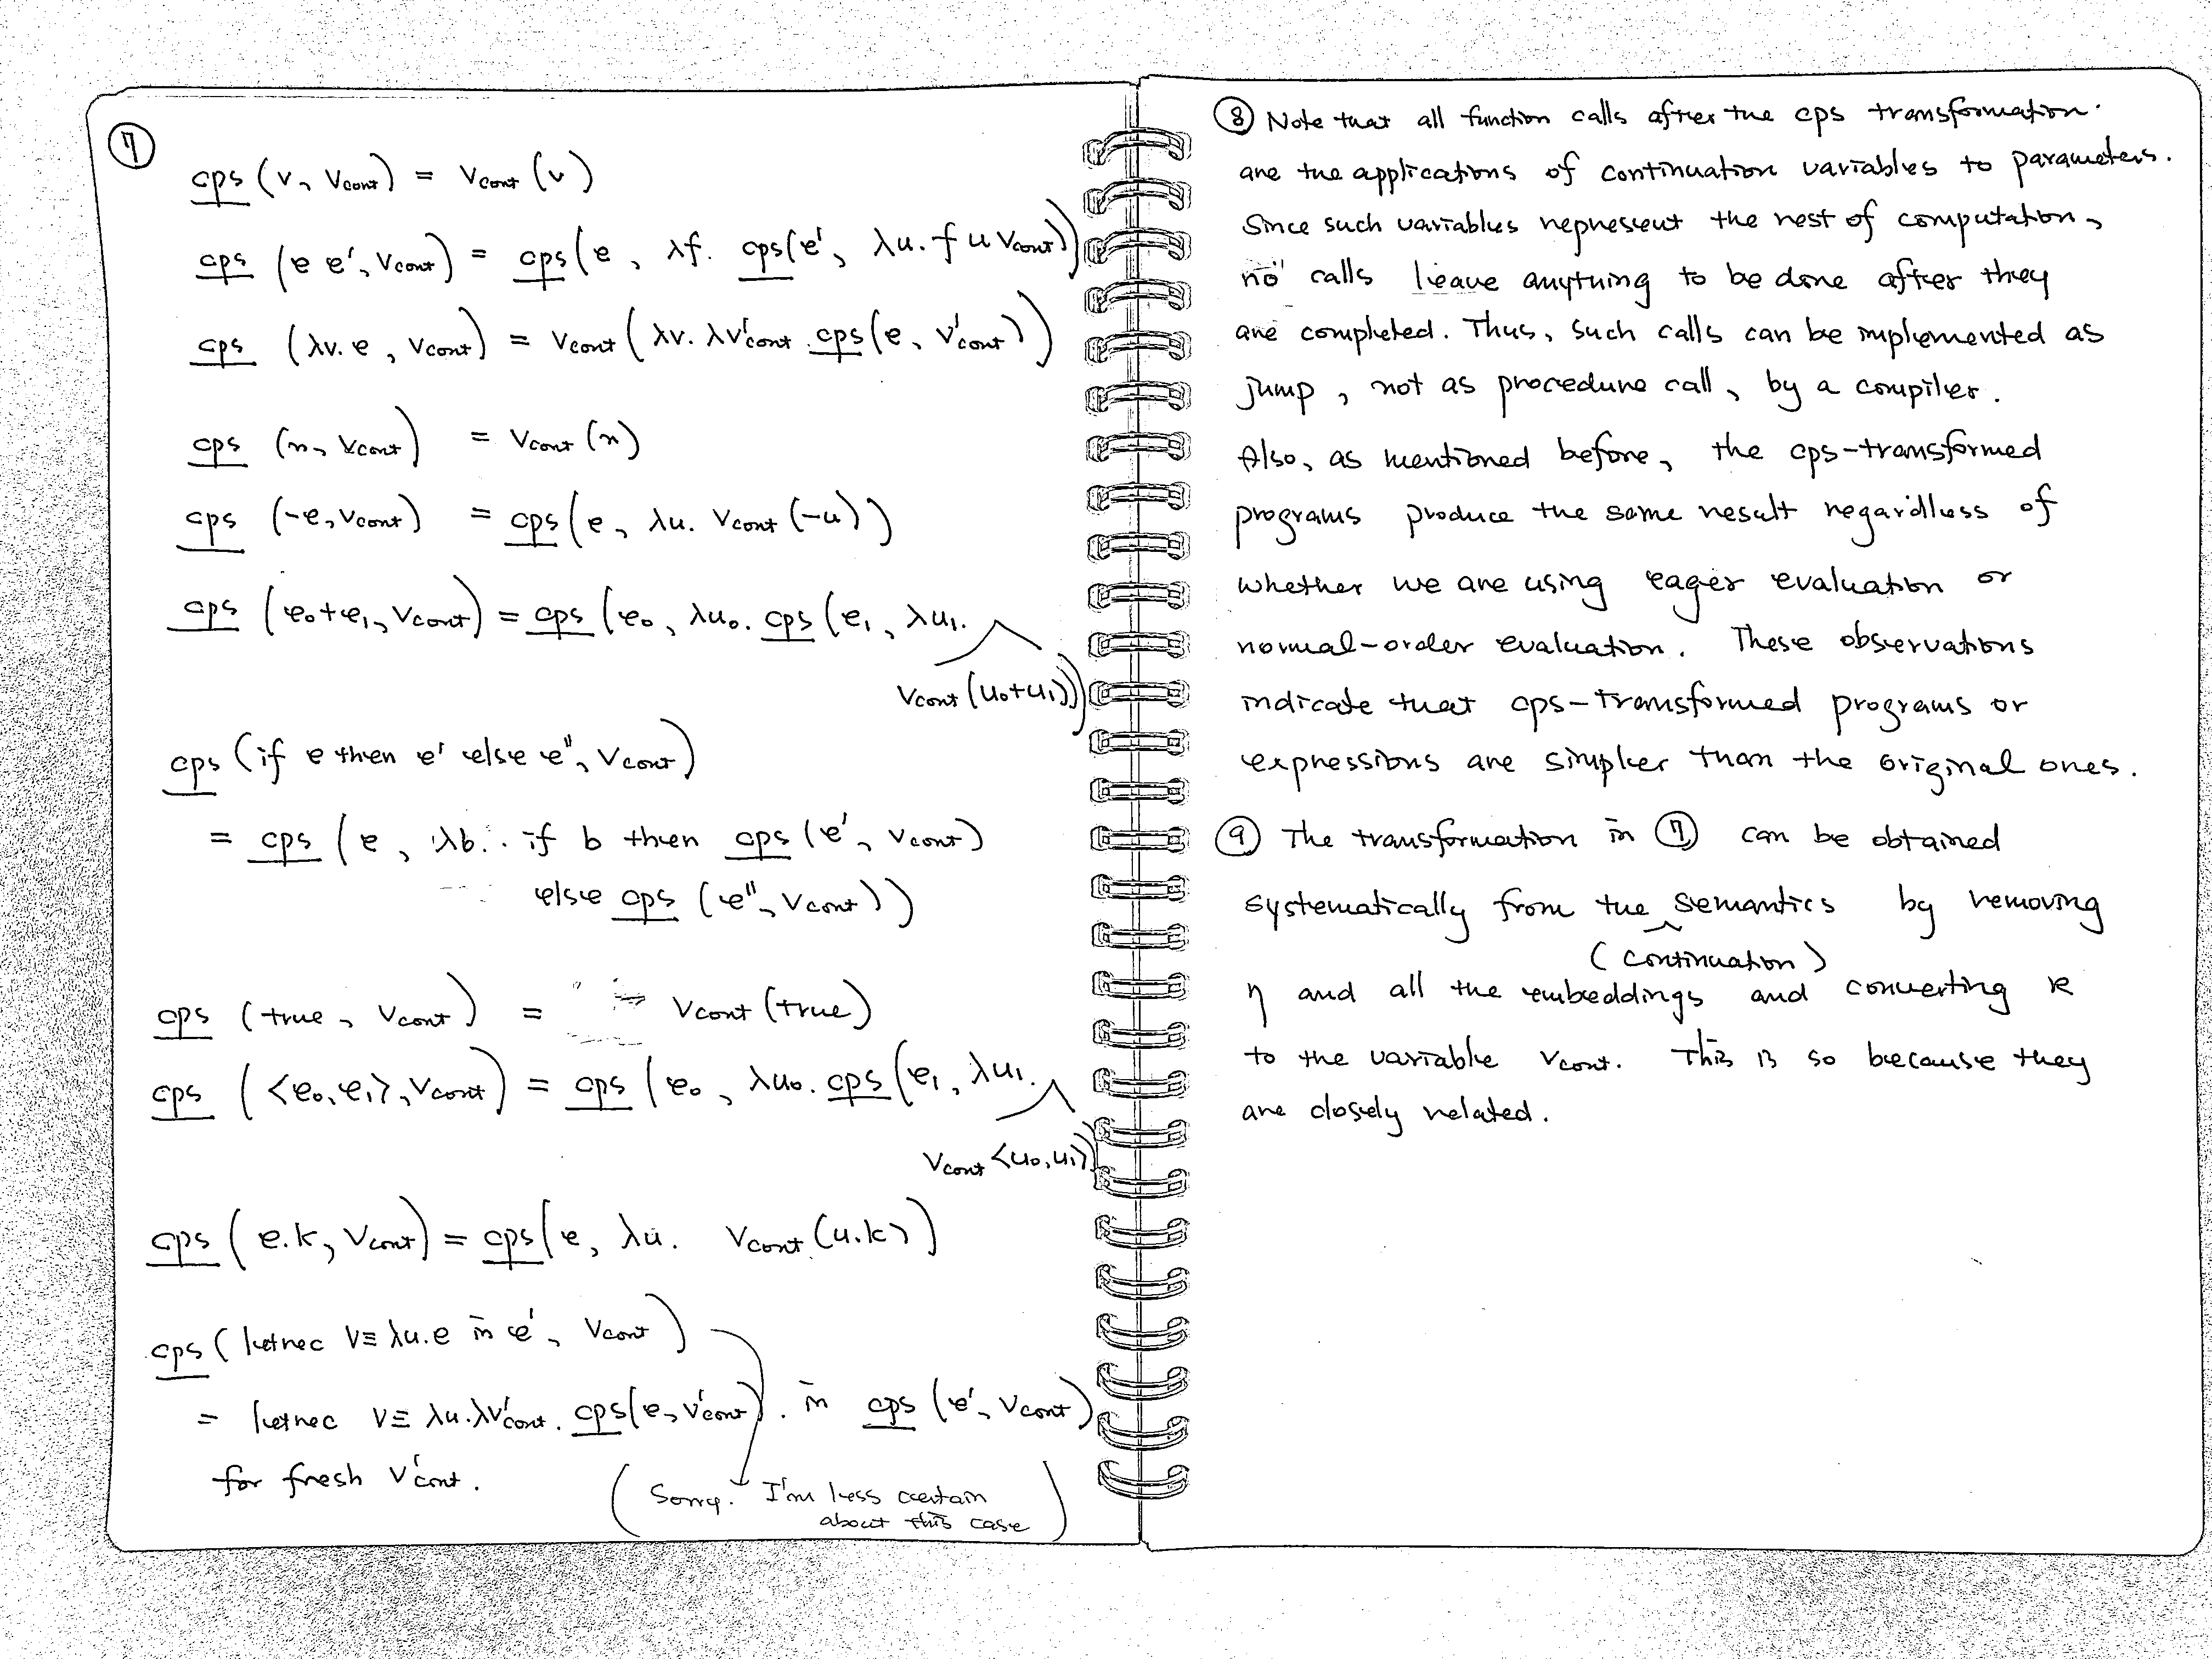 ⑦
cps (v, vcont) = vcont (v)
cps (e e', vcont) = cps(e, λf. cps(e', λu. f u vcont))
cps (λv. e, vcont) = vcont (λv. λv'cont. cps(e, v'cont))
cps (n, vcont) = vcont (n)
cps (-e, vcont) = cps(e, λu. vcont (-u))
cps (e₀+e₁, vcont) = cps (e₀, λu₀. cps (e₁, λu₁.
vcont (u₀+u₁)))
cps (if e then e' else e'', vcont)
= cps (e, λb. if b then cps (e', vcont)
else cps (e'', vcont))
cps (true, vcont) = vcont (true)
cps (<e₀, e₁>, vcont) = cps (e₀, λu₀. cps (e₁, λu₁.
vcont <u₀, u₁>))
cps (e.k, vcont) = cps(e, λu. vcont (u.k))
cps (letrec v≡ λu.e in e', vcont)
= letrec v≡ λu.λv'cont. cps(e, v'cont). in cps (e', vcont)
for fresh v'cont.
(Sorry. I'm less certain
about this case)
⑧ Note that all function calls after the cps transformation
are the applications of continuation variables to parameters.
Since such variables represent the rest of computation,
no calls leave anything to be done after they
are completed. Thus, such calls can be implemented as
jump, not as procedure call, by a compiler.
Also, as mentioned before, the cps-transformed
programs produce the same result regardless of
whether we are using eager evaluation or
normal-order evaluation. These observations
indicate that cps-transformed programs or
expressions are simpler than the original ones.
⑨ The transformation in ⑦ can be obtained
systematically from the semantics by removing
(continuation)
η and all the embeddings and converting κ
to the variable vcont. This is so because they
are closely related.